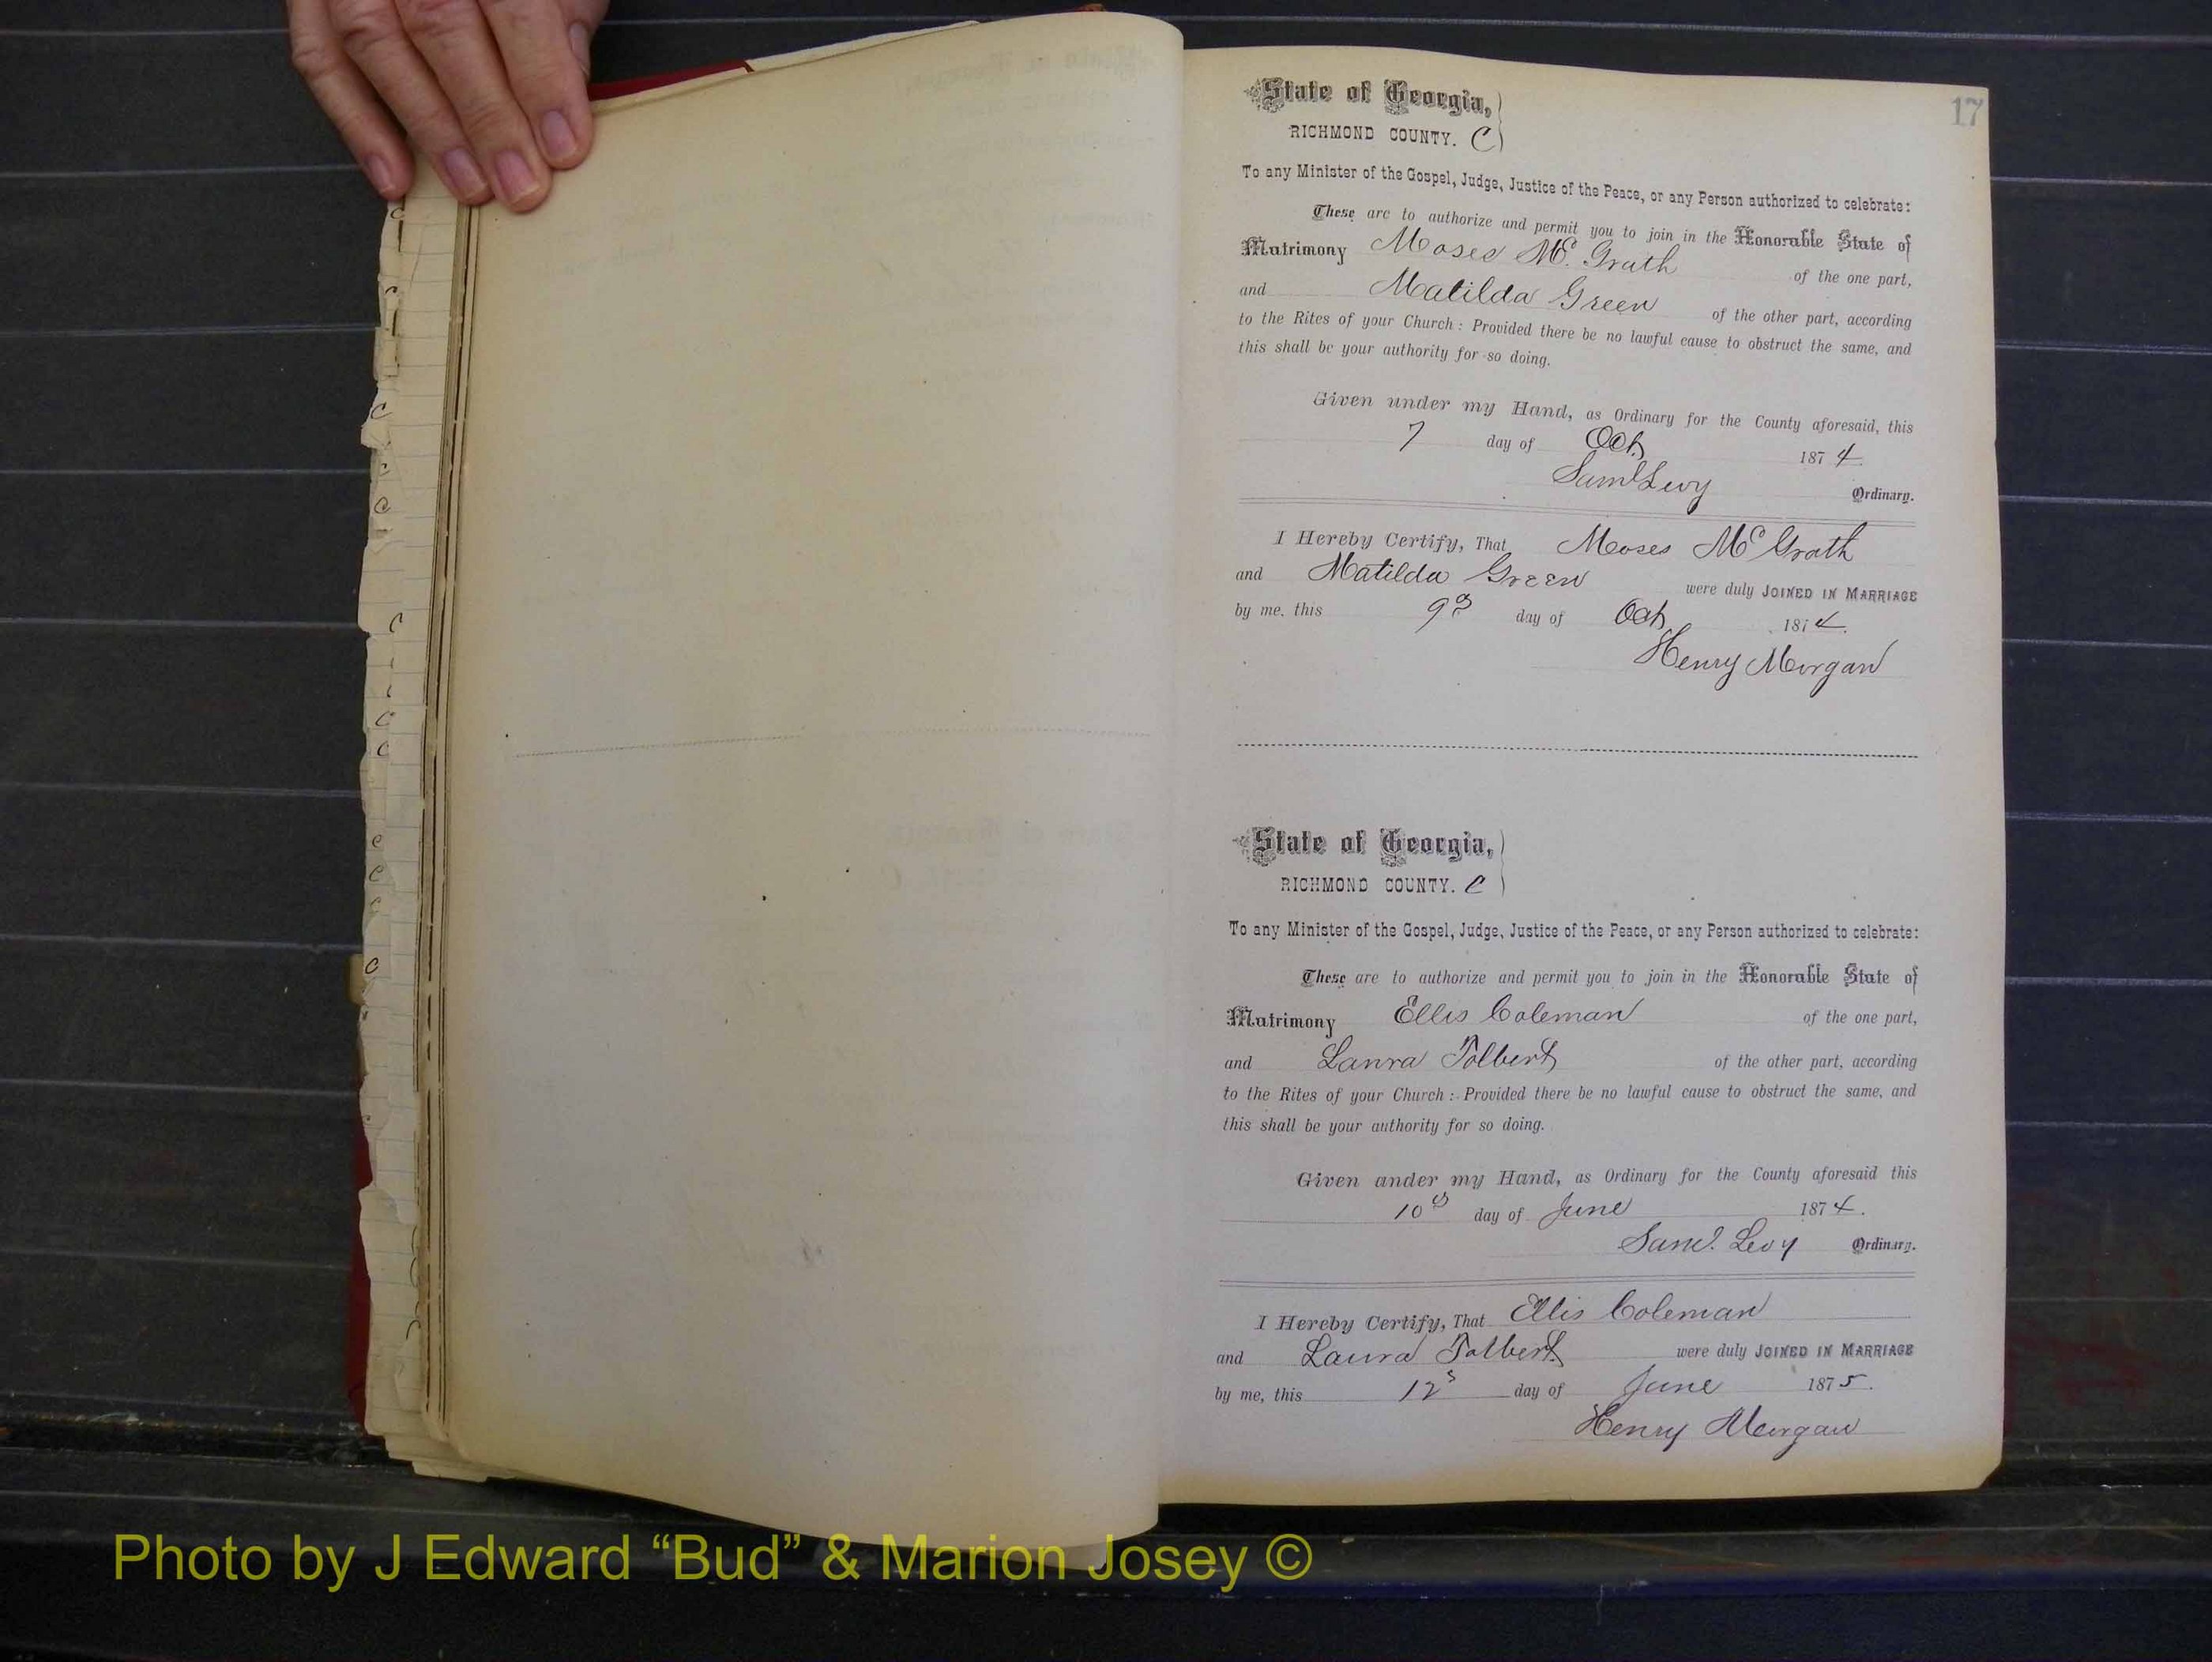 17
State of Georgia,
RICHMOND COUNTY. C
To any Minister of the Gospel, Judge, Justice of the Peace, or any Person authorized to celebrate:
These are to authorize and permit you to join in the Honorable State of
Matrimony Moses Mc. Grath of the one part,
and Matilda Green of the other part, according
to the Rites of your Church: Provided there be no lawful cause to obstruct the same, and
this shall be your authority for so doing.
Given under my Hand, as Ordinary for the County aforesaid, this
7 day of Oct. 1874.
Saml Levy Ordinary.
I Hereby Certify, That Moses Mc Grath
and Matilda Green were duly JOINED IN MARRIAGE
by me, this 9th day of Oct 1874.
Henry Morgan
State of Georgia,
RICHMOND COUNTY. C
To any Minister of the Gospel, Judge, Justice of the Peace, or any Person authorized to celebrate:
These are to authorize and permit you to join in the Honorable State of
Matrimony Ellis Coleman of the one part,
and Laura Tolbert of the other part, according
to the Rites of your Church: Provided there be no lawful cause to obstruct the same, and
this shall be your authority for so doing.
Given under my Hand, as Ordinary for the County aforesaid this
10th day of June 1874.
Saml. Levy Ordinary.
I Hereby Certify, That Ellis Coleman
and Laura Tolbert were duly JOINED IN MARRIAGE
by me, this 12th day of June 1875.
Henry Morgan
Photo by J Edward “Bud” & Marion Josey ©